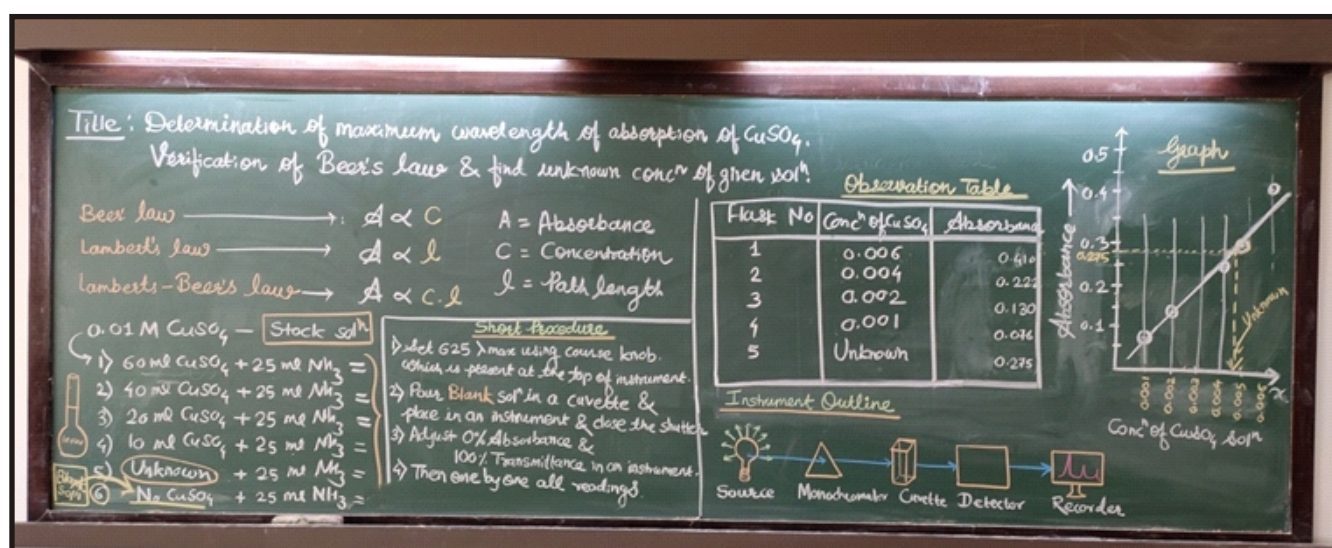 Title: Determination of maximum wavelength of absorption of CuSO₄.
Verification of Beer's law & find unknown concⁿ of given solⁿ.
Beer law → : A ∝ C
Lambert's law → A ∝ l
Lamberts-Beer's law → A ∝ c.l
A = Absorbance
C = Concentration
l = Path length
0.01 M CuSO₄ — Stock solⁿ
1) 60 ml CuSO₄ + 25 ml NH₃ =
2) 40 ml CuSO₄ + 25 ml NH₃ =
3) 20 ml CuSO₄ + 25 ml NH₃ =
4) 10 ml CuSO₄ + 25 ml NH₃ =
5) Unknown + 25 ml NH₃ =
6 No CuSO₄ + 25 ml NH₃ =
Short Procedure
1) Set 625 λmax using course knob.
which is present at the top of instrument.
2) Pour Blank solⁿ in a cuvette &
place in an instrument & close the shutter
3) Adjust 0% Absorbance &
100% Transmittance in an instrument.
4) Then one by one all readings.
Observation Table
Flask No Concⁿ of CuSO₄ Absorbance
1 0.006 0.410
2 0.004 0.222
3 0.002 0.130
4 0.001 0.076
5 Unknown 0.275
Instrument Outline
Source Monochromator Cuvette Detector Recorder
Graph
0.5
0.4
0.3
0.275
0.2
0.1
Absorbance
Unknown
0.001 0.002 0.003 0.004 0.005 0.006 x
Concⁿ of CuSO₄ solⁿ